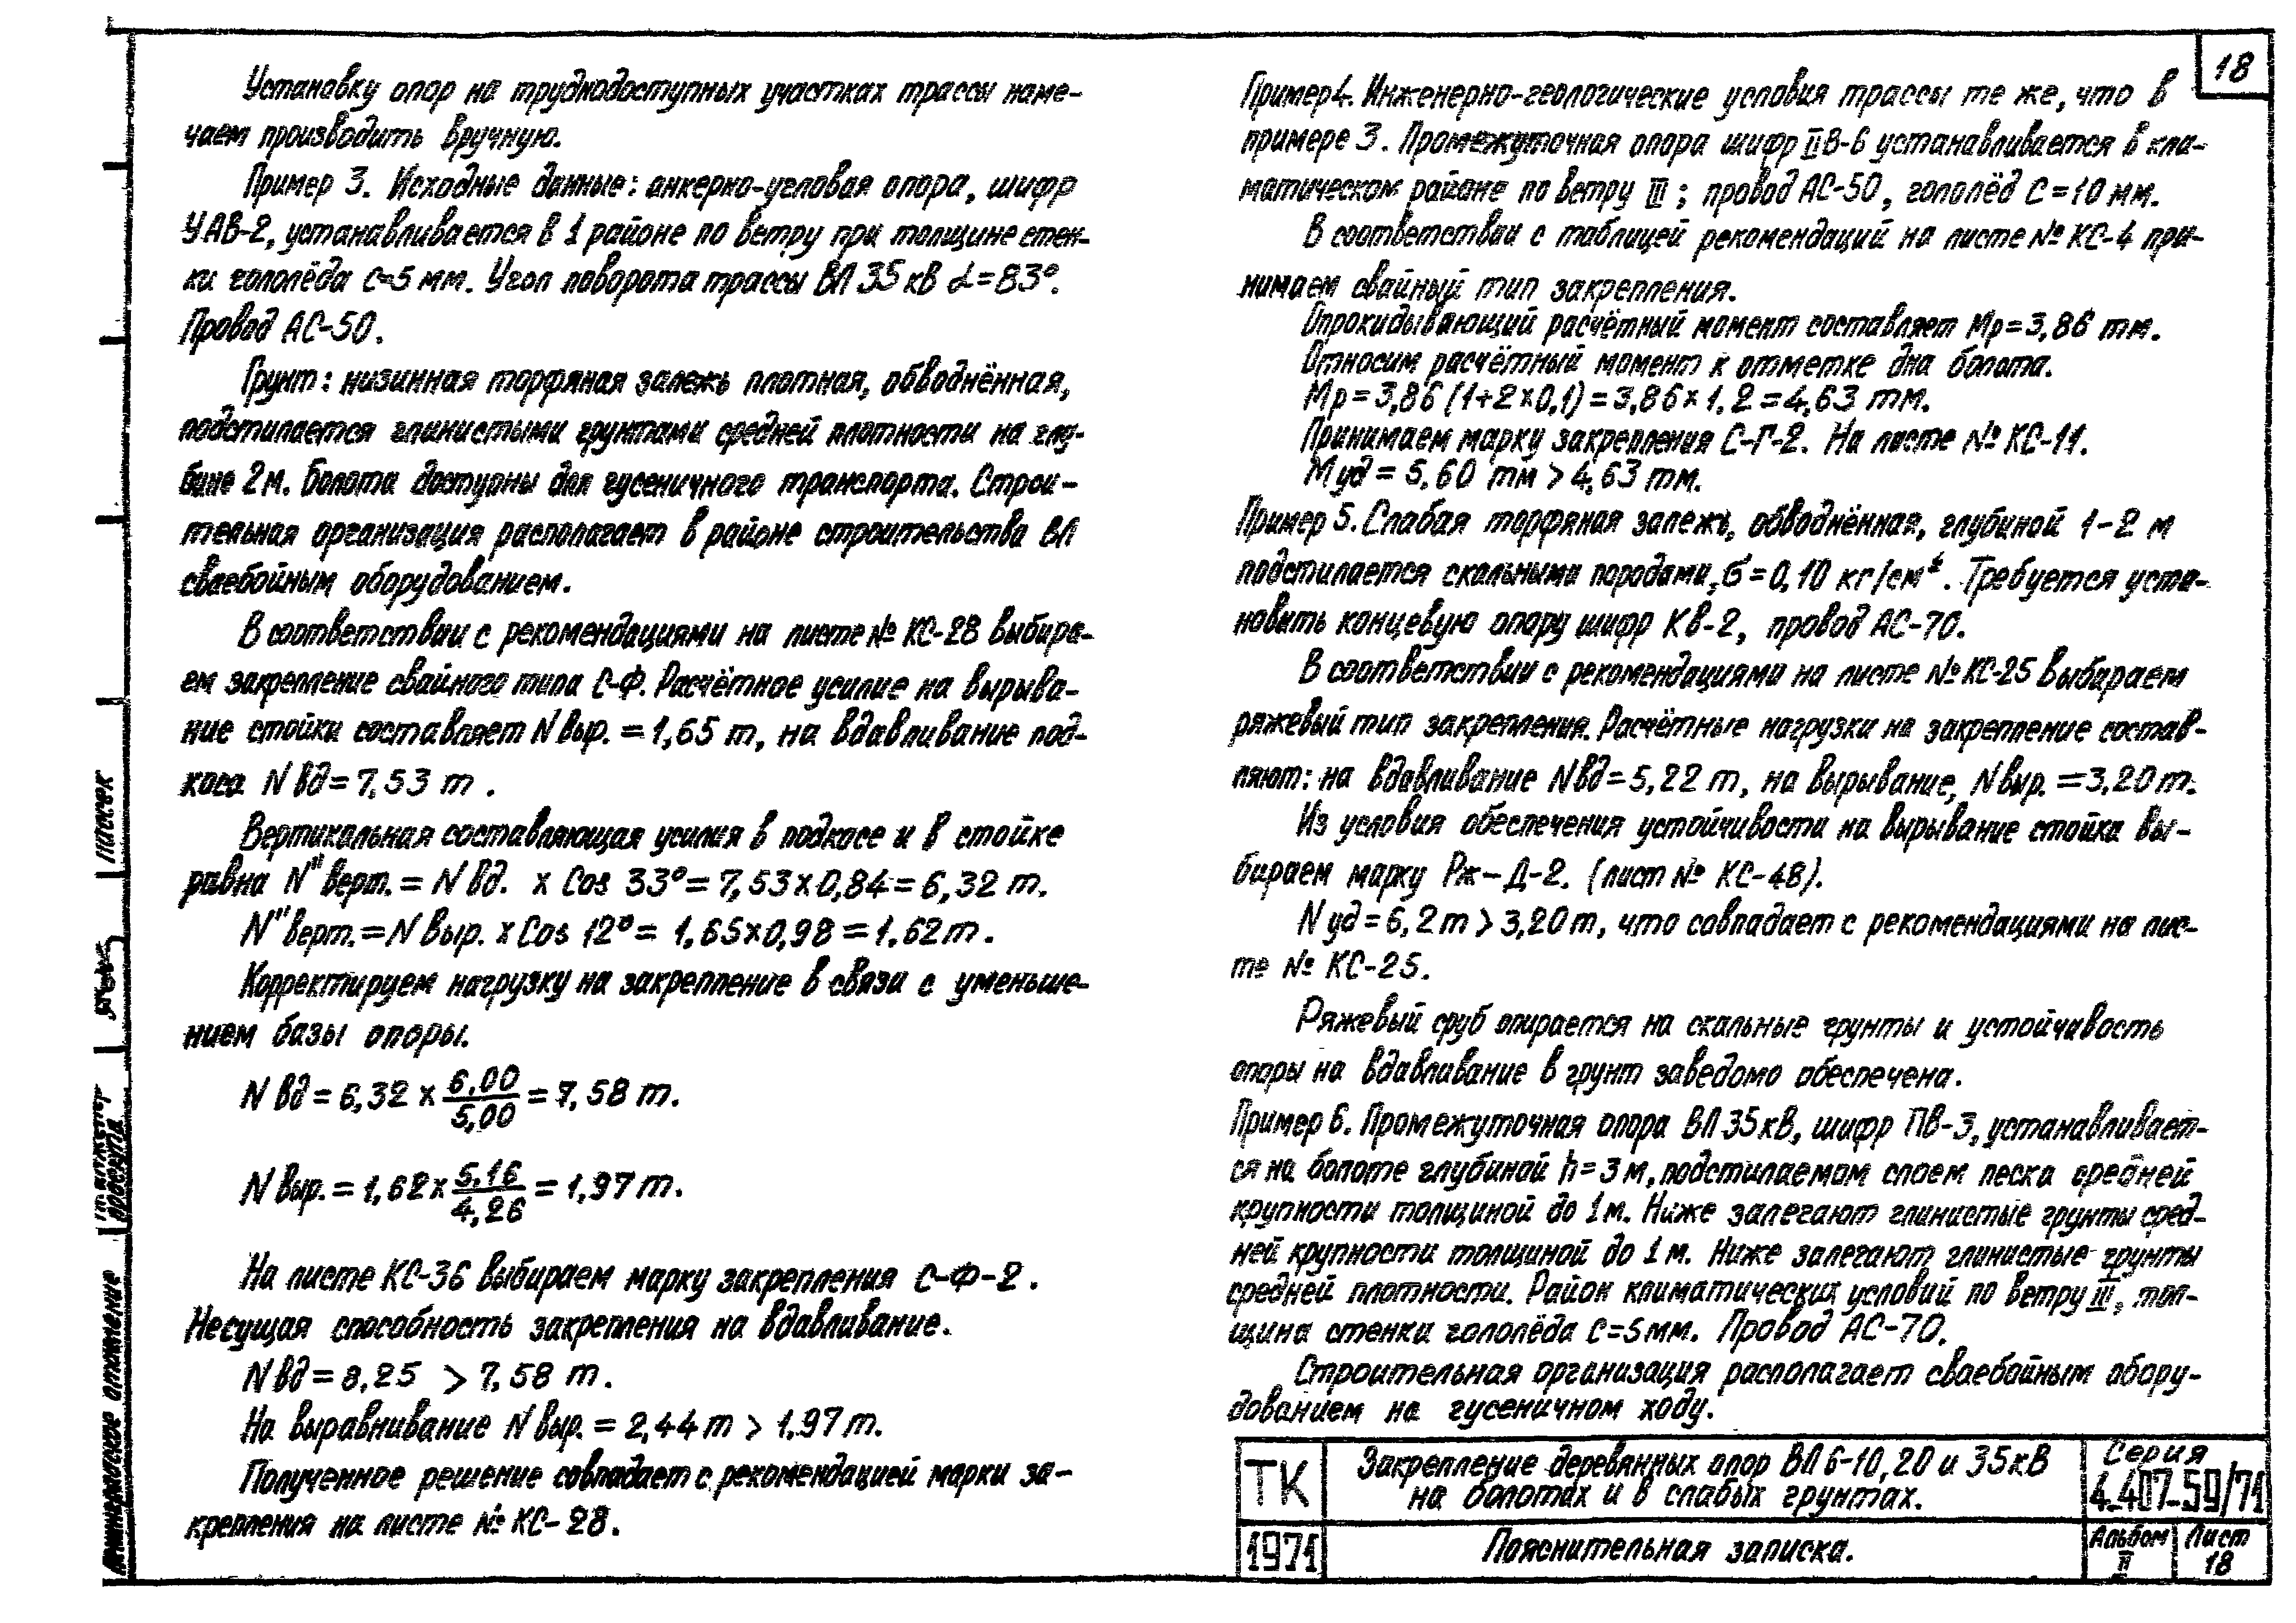 18
Установку опор на труднодоступных участках трассы наме-
чаем производить вручную.
Пример 3. Исходные данные: анкерно-угловая опора, шифр
УАВ-2, устанавливается в 1 районе по ветру при толщине стен-
ки гололёда c=5 мм. Угол поворота трассы ВЛ 35 кВ α=83°.
Провод АС-50.
Грунт: низинная торфяная залежь плотная, обводнённая,
подстилается глинистыми грунтами средней плотности на глу-
бине 2м. Болота доступны для гусеничного транспорта. Строи-
тельная организация располагает в районе строительства ВЛ
сваебойным оборудованием.
В соответствии с рекомендациями на листе № КС-28 выбира-
ем закрепление свайного типа С-Ф. Расчётное усилие на вырыва-
ние стойки составляет N выр. = 1,65 т, на вдавливание под-
коса N вд = 7,53 т.
Вертикальная составляющая усилия в подкосе и в стойке
равна N" верт. = N вд. x Cos 33° = 7,53x0,84 = 6,32 т.
N" верт. = N выр. x Cos 12° = 1,65x0,98 = 1,62 т.
Корректируем нагрузку на закрепление в связи с уменьше-
нием базы опоры.
N вд = 6,32 x 6,00/5,00 = 7,58 т.
N выр. = 1,62 x 5,16/4,26 = 1,97 т.
На листе КС-36 выбираем марку закрепления С-Ф-2.
Несущая способность закрепления на вдавливание.
N вд = 8,25 > 7,58 т.
На выравнивание N выр. = 2,44 т > 1,97 т.
Полученное решение совпадает с рекомендацией марки за-
крепления на листе № КС-28.
Пример 4. Инженерно-геологические условия трассы те же, что в
примере 3. Промежуточная опора шифр IIВ-6 устанавливается в кли-
матическом районе по ветру III; провод АС-50, гололёд C=10 мм.
В соответствии с таблицей рекомендаций на листе № КС-4 при-
нимаем свайный тип закрепления.
Опрокидывающий расчётный момент составляет Мр=3,86 тм.
Относим расчётный момент к отметке дна болота.
Мр=3,86 (1+2x0,1)=3,86x1,2=4,63 тм.
Принимаем марку закрепления С-Г-2. На листе № КС-11.
М уд = 5,60 тм > 4,63 тм.
Пример 5. Слабая торфяная залежь, обводнённая, глубиной 1-2 м
подстилается скальными породами, σ=0,10 кг/см². Требуется уста-
новить концевую опору шифр КВ-2, провод АС-70.
В соответствии с рекомендациями на листе № КС-25 выбираем
ряжевый тип закрепления. Расчётные нагрузки на закрепление состав-
ляют: на вдавливание N вд=5,22 т, на вырывание, N выр. =3,20 т.
Из условия обеспечения устойчивости на вырывание стойки вы-
бираем марку Рж-Д-2. (лист № КС-48).
N уд = 6,2 т > 3,20 т, что совпадает с рекомендациями на лис-
те № КС-25.
Ряжевый сруб опирается на скальные грунты и устойчивость
опоры на вдавливание в грунт заведомо обеспечена.
Пример 6. Промежуточная опора ВЛ 35 кВ, шифр ПВ-3, устанавливает-
ся на болоте глубиной h=3 м, подстилаемом слоем песка средней
крупности толщиной до 1 м. Ниже залегают глинистые грунты сред-
ней крупности толщиной до 1 м. Ниже залегают глинистые грунты
средней плотности. Район климатических условий по ветру III, тол-
щина стенки гололёда c=5 мм. Провод АС-70.
Строительная организация располагает сваебойным обору-
дованием на гусеничном ходу.
ТК
Закрепление деревянных опор ВЛ 6-10, 20 и 35 кВ
на болотах и в слабых грунтах.
Серия
4.407-59/71
1971
Пояснительная записка.
Альбом
II
Лист
18